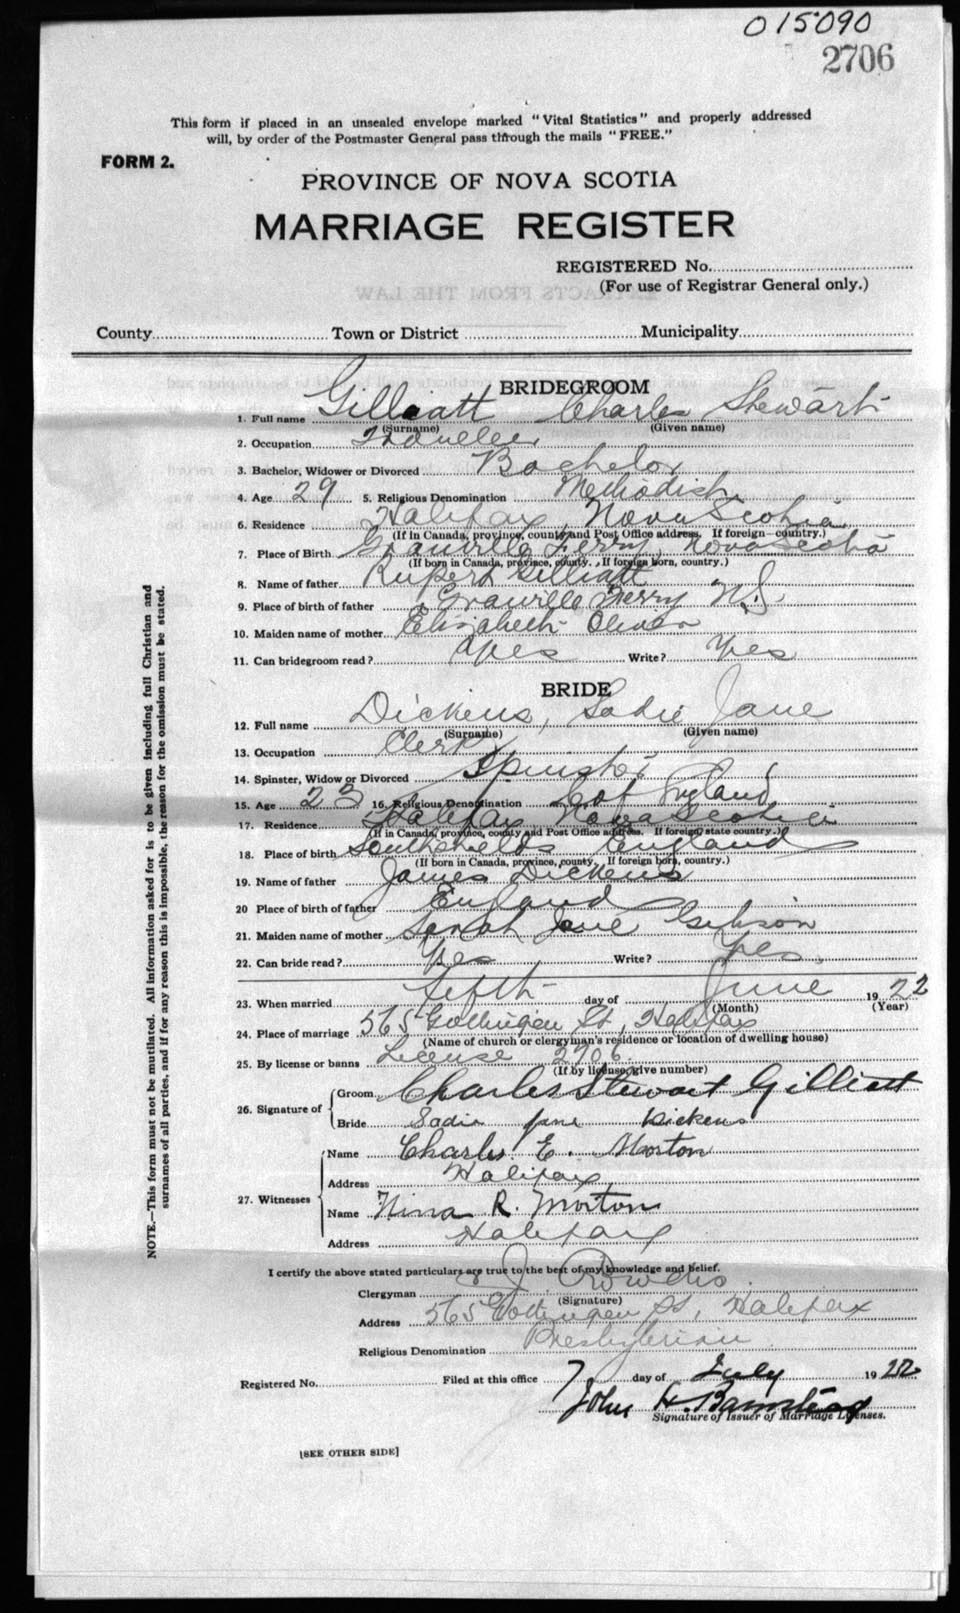 015090
2706
This form if placed in an unsealed envelope marked "Vital Statistics" and properly addressed
will, by order of the Postmaster General pass through the mails "FREE."
FORM 2.
PROVINCE OF NOVA SCOTIA
MARRIAGE REGISTER
REGISTERED No.
(For use of Registrar General only.)
EXTRACTS FROM THE LAW
County Town or District Municipality
BRIDEGROOM
1. Full name Gilliatt Charles Stewart
(Surname) (Given name)
2. Occupation Traveller
3. Bachelor, Widower or Divorced Bachelor
4. Age 29 5. Religious Denomination Methodist
6. Residence Halifax, Nova Scotia
(If in Canada, province, county and Post Office address. If foreign country.)
7. Place of Birth Granville Ferry, Nova Scotia
(If born in Canada, province, county. If foreign born, country.)
8. Name of father Rupert Gilliatt
9. Place of birth of father Granville Ferry N.S.
10. Maiden name of mother Elizabeth Oliver
11. Can bridegroom read? Yes Write? Yes
BRIDE
12. Full name Dickens, Sadie Jane
(Surname) (Given name)
13. Occupation Clerk
14. Spinster, Widow or Divorced Spinster
15. Age 23 16. Religious Denomination C of England
17. Residence Halifax, Nova Scotia
(If in Canada, province, county and Post Office address. If foreign state country.)
18. Place of birth Southshields England
(If born in Canada, province, county. If foreign born, country.)
19. Name of father James Dickens
20 Place of birth of father England
21. Maiden name of mother Sarah Jane Gibson
22. Can bride read? Yes Write? Yes.
23. When married Fifth day of June 1922
(Month) (Year)
24. Place of marriage 565 Gottingen St, Halifax
(Name of church or clergyman's residence or location of dwelling house)
25. By license or banns License 2706.
(If by license, give number)
26. Signature of Groom Charles Stewart Gilliatt
Bride Sadie Jane Dickens
27. Witnesses Name Charles E. Morton
Address Halifax
Name Nina R. Morton
Address Halifax
I certify the above stated particulars are true to the best of my knowledge and belief.
Clergyman
(Signature)
Address 565 Gottingen St, Halifax
Religious Denomination Presbyterian
Registered No. Filed at this office 7 day of July 1922
John H. Barnstead
Signature of Issuer of Marriage Licenses.
[SEE OTHER SIDE]
NOTE.—This form must not be mutilated. All information asked for is to be given including full Christian and
surnames of all parties, and if for any reason this is impossible, the reason for the omission must be stated.